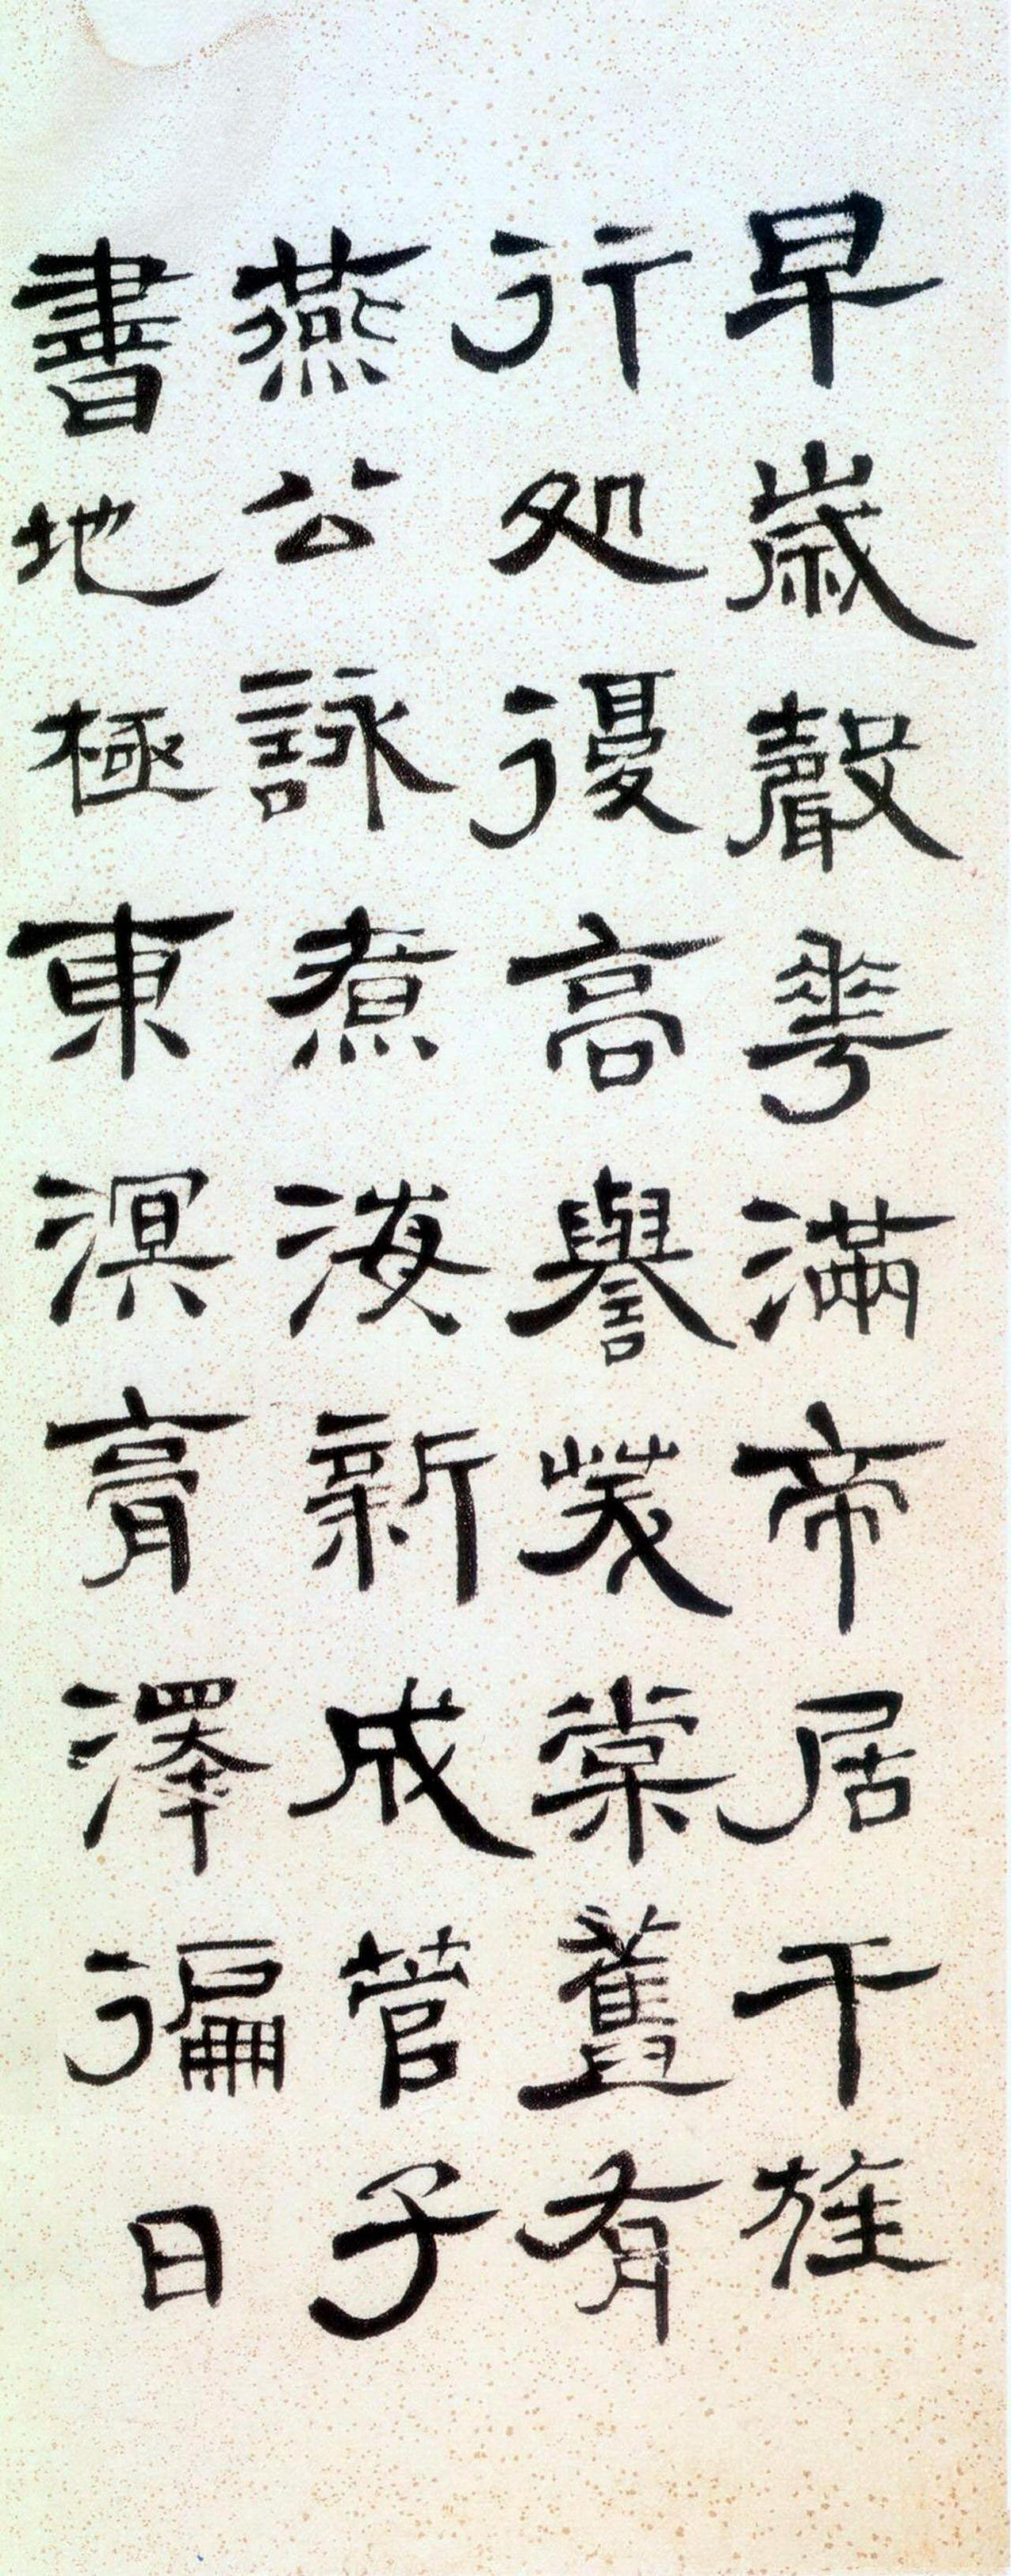 早歲聲華滿帝居干旌
行处優高譽茂棠舊有
燕公詠煮海新成管子
書地極東溟膏澤徧日